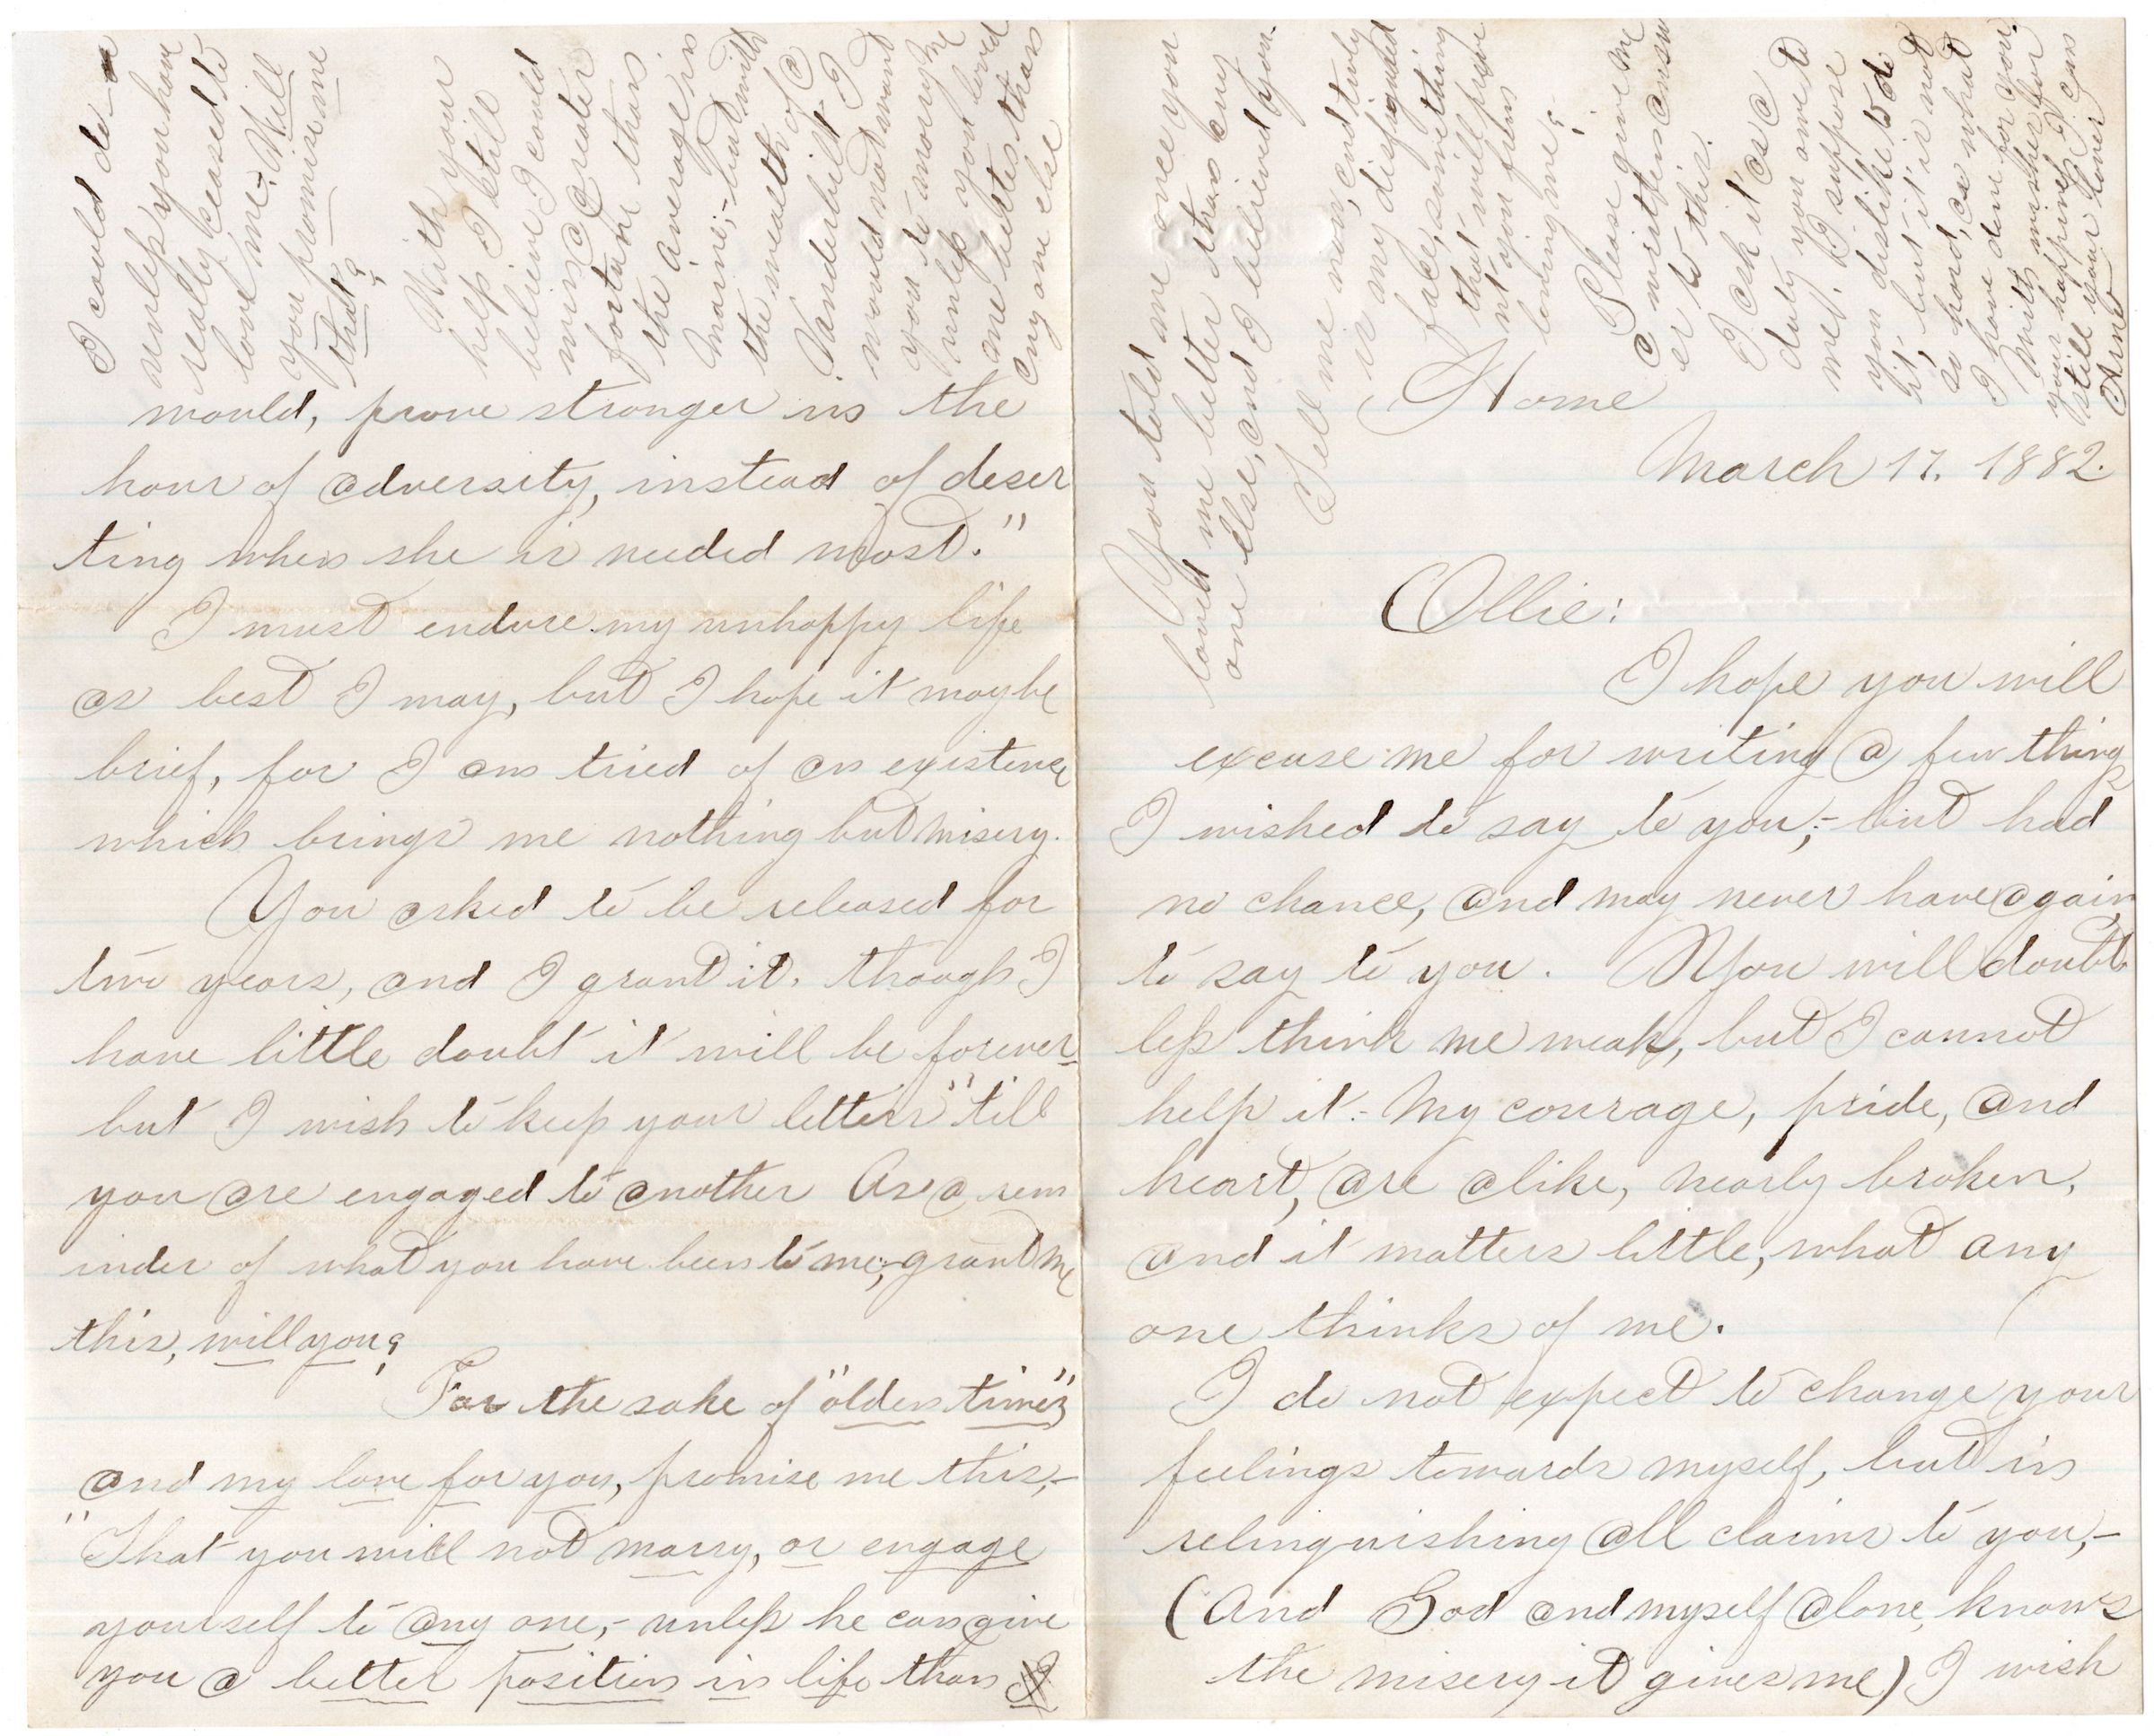 Home
March 17. 1882.
Ollie:
I hope you will
excuse me for writing a few things
I wished to say to you;- but had
no chance, and may never have again
to say to you. You will doubt
less think me weak, but I cannot
help it.- My courage, pride, and
heart, are alike, nearly broken,
and it matters little, what any
one thinks of me.
I do not expect to change your
feelings towards myself, but in
relinquishing all claims to you,-
(And God and myself alone, knows
the misery it gives me) I wish
would, prove stronger in the
hour of adversity, instead of deser
ting when she is needed most."
I must endure my unhappy life
as best I may, but I hope it maybe
brief, for I am tried of an existence
which brings me nothing but misery.
You asked to be released for
two years, and I grant it. though I
have little doubt it will be forever
but I wish to keep your letters "till
you are engaged to another As a rem
inder of what you have been to me;- grant me
this, will you?
For the sake of "olden times"
and my love for you, promise me this,-
"That you will not marry, or engage
yourself to any one,- unless he can give
you a better position in life than I
I could do - or
unless you have
really ceased to
love me.- Will
you promise me
that?
With your
help I still
believe I could
win a greater
fortune than
the average in
Maine;- but with
the wealth of a
Vanderbilt I
would not want
you to marry me
unless you loved
me better than
any one else
You told me once you
loved me better than any
one else, and I believed you.
Tell me now, and truly
is my disfigured
face, something
that will preve
nt you from
loving me?
Please give me
a written answ
er to this.
I ask it as a
duty you owe to
me. I suppose
you dislike to do
it, but it is not
so hard, as what
I have done for you.
With wishes for
your happiness I am
still your lover
Arno